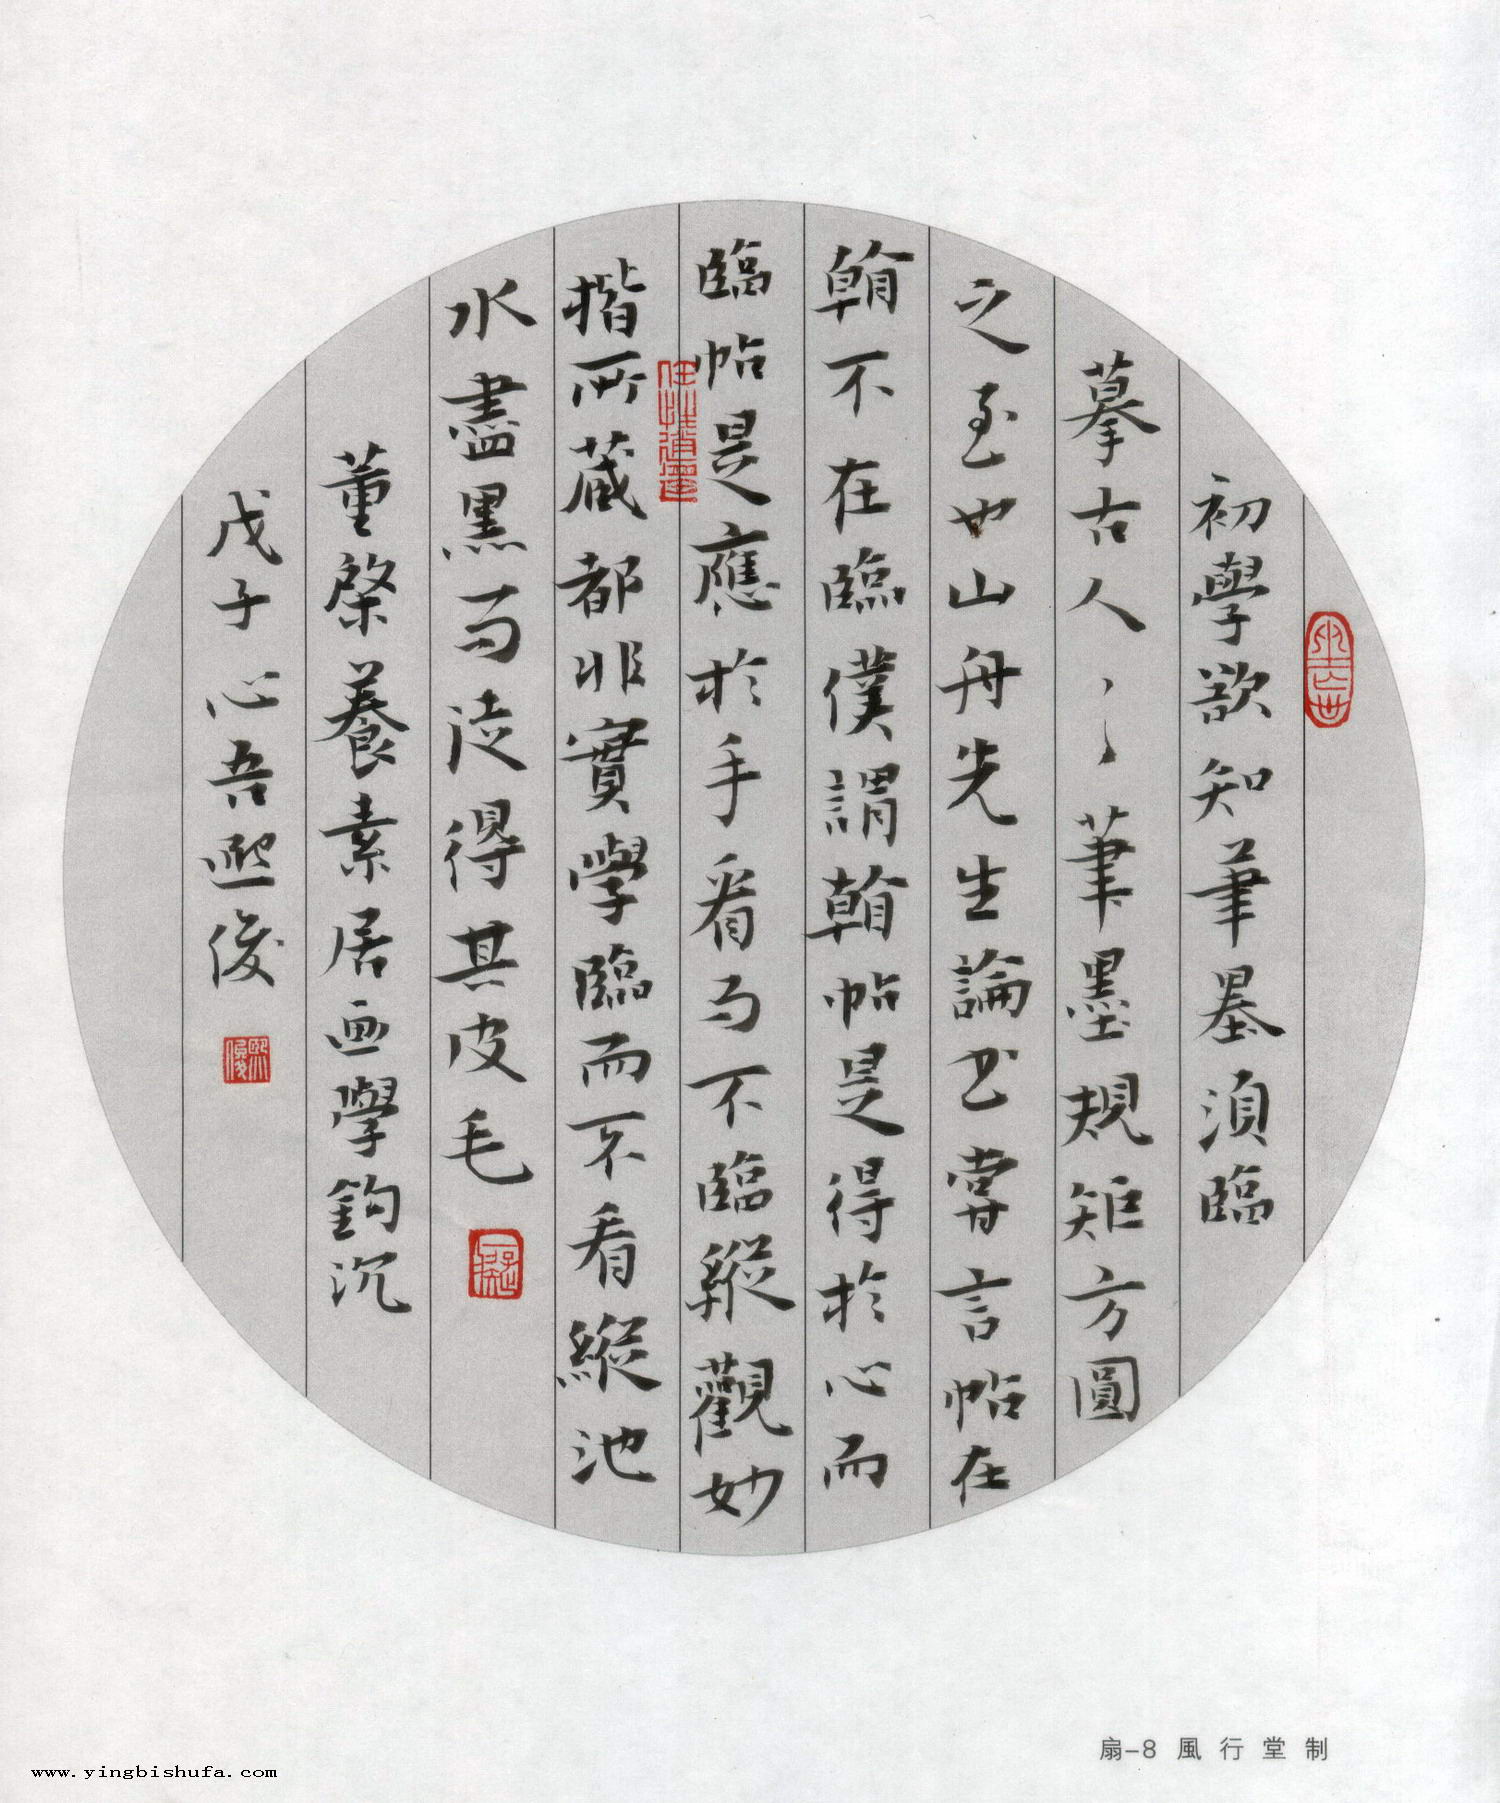 初學欲知筆墨須臨
摹古人〻〻筆墨規矩方圓
之至也山舟先生論書嘗言帖在
翰不在臨僕謂翰帖是得於心而
臨帖是應於手看而不臨縱觀妙
楷所藏都非實學臨而不看縱池
水盡黑而徒得其皮毛
董棨養素居画學鉤沉
戊子心吾熙俊
熙俊
扇-8 風行堂制
www.yingbishufa.com